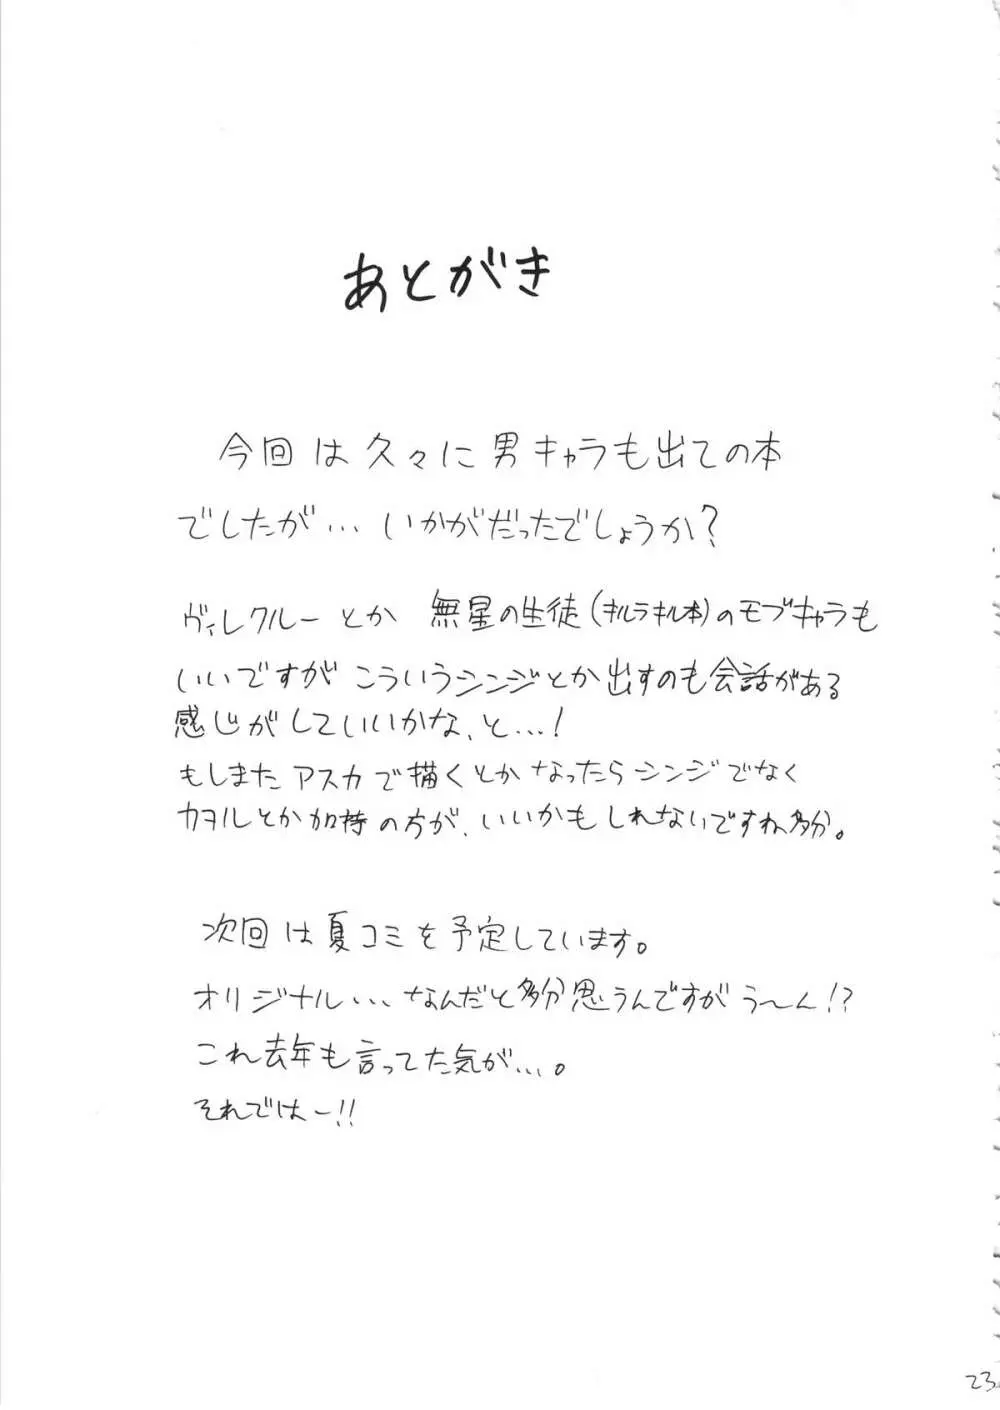 あとがき
今回は久々に男キャラも出ての本
でしたが… いかがだったでしょうか?
ヴィレクルーとか 無星の生徒(キルラキル本)のモブキャラも
いいですが こういうシンジとか出すのも会話がある
感じがしていいかな、と…!
もしまたアスカで描くとかなったらシンジでなく
カヲルとか加持の方が、いいかもしれないですね多分。
次回は夏コミを予定しています。
オリジナル…なんだと多分思うんですがう〜ん!?
これ去年も言ってた気が…。
それではー!!
23